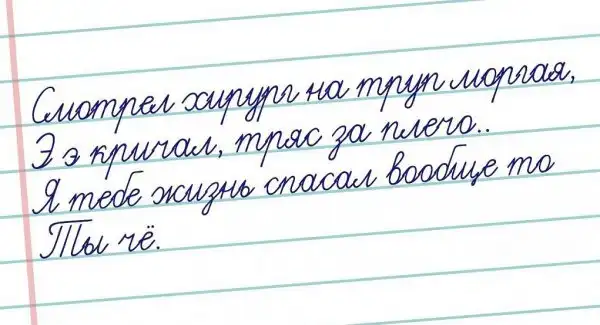 Смотрел хирург на труп моргая,
Э э кричал, тряс за плечо..
Я тебе жизнь спасал вообще то
Ты чё.